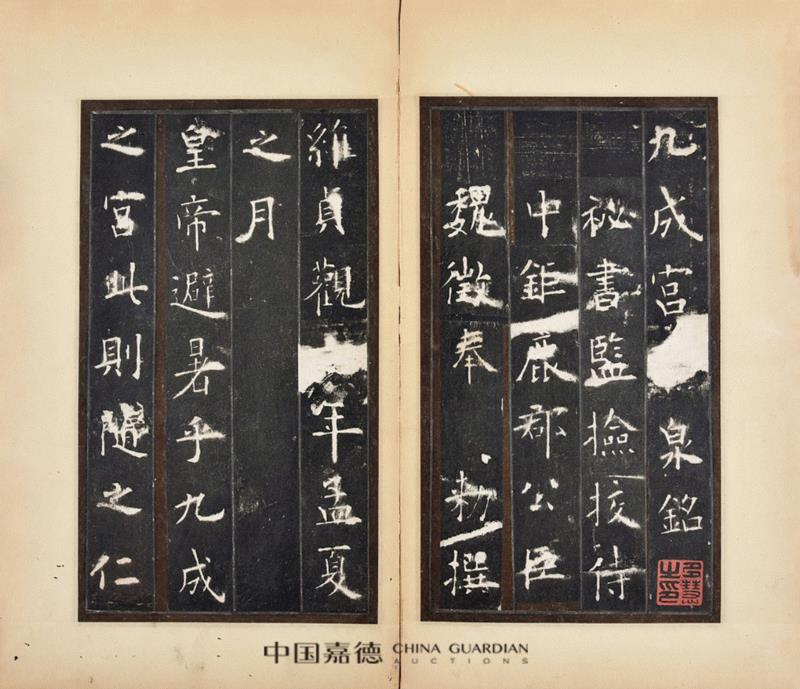 九成宮泉銘
祕書監撿挍侍
中鉅鹿郡公臣
魏徵奉 勑撰
多慧之印
維貞觀年孟夏
之月
皇帝避暑乎九成
之宮此則隨之仁
中国嘉德 CHINA GUARDIAN
AUCTIONS